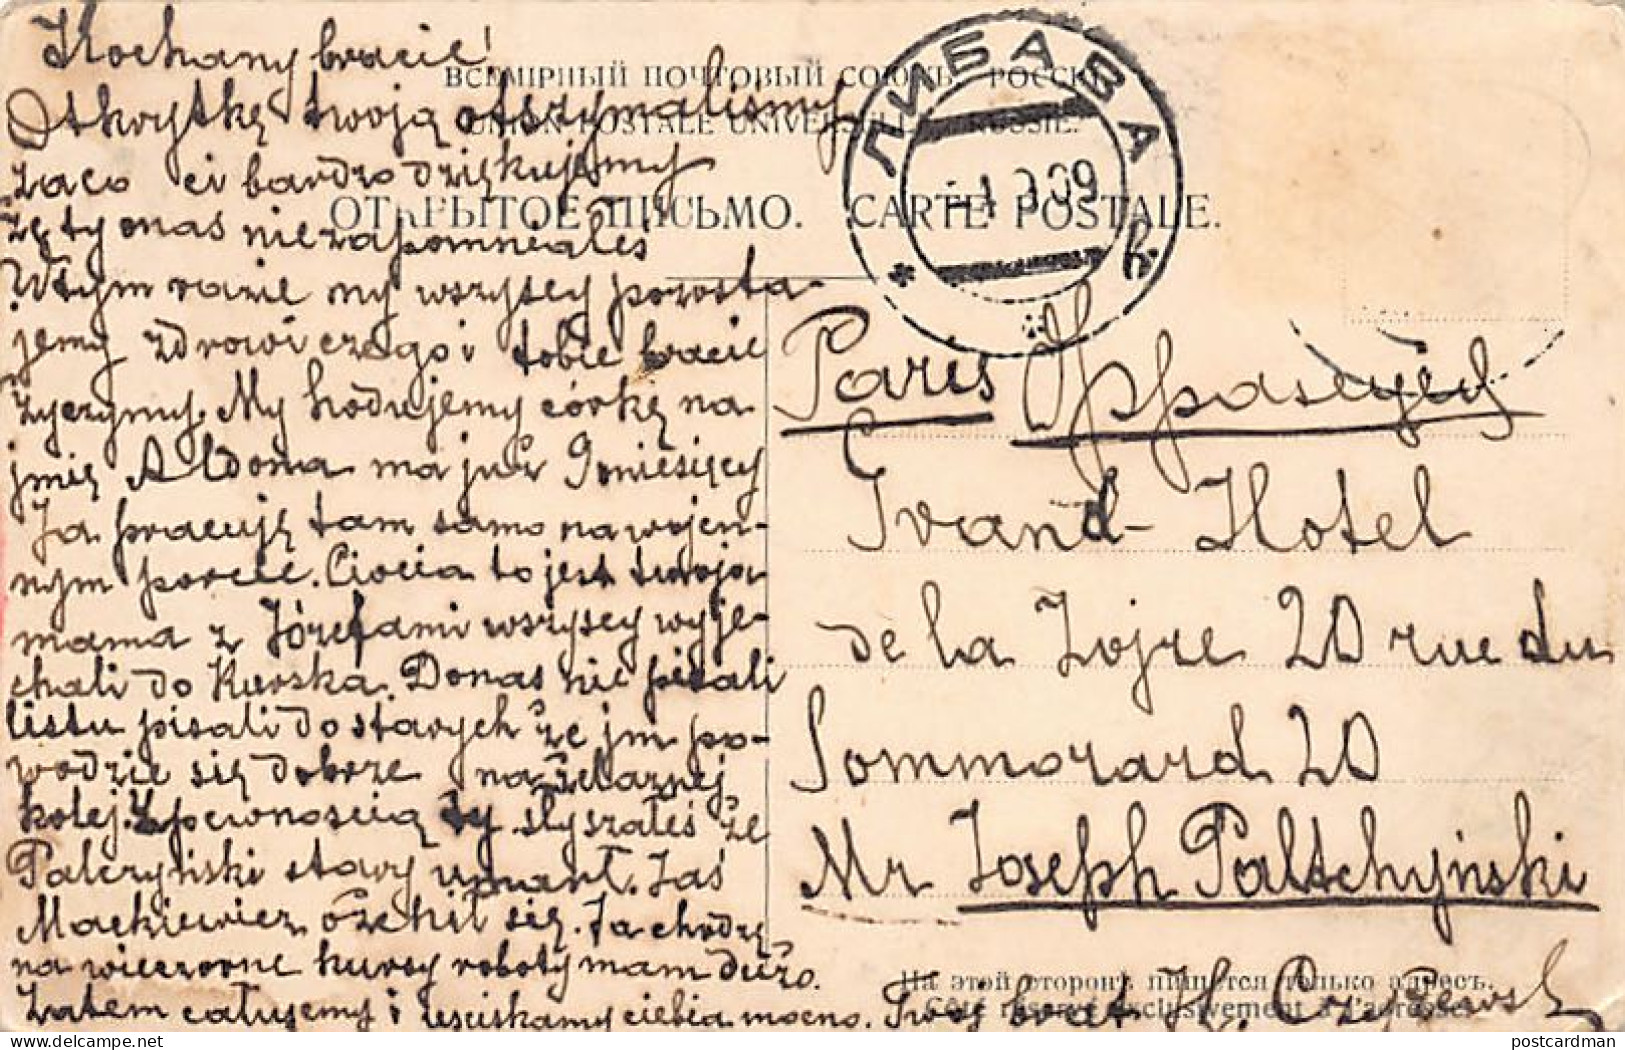 Kochany bracie!
Otkrytkę twoją otszymaliśmy
zaco ci bardzo dziękujemy
że ty onas niezapomniałeś
Wtym razie my wszyscy pozosta-
jemy zdrowi czego i tobie bracie
życzymy. My hodujemy córkę na
jmię Aldona ma już 9 miesięcy
Ja pracuję tam samo na wojen-
nym porcie. Ciocia to jest twoja
mama z Józefami wszyscy wyje-
chali do Kurska. Donas nie pisali
listu pisali do starych że jm po-
wodzie się dobrze na żelaznej
kolej. Z pewnoscią ty słyszałeś że
Palczyński stary umarł. Jaś
Mackiewicz ożenił się. Ja chodzę
na wieczorne kursy roboty mam dużo.
Zatem całujemy i usciskamy ciebia mocno. Twój brat K.
ВСЕМІРНЫЙ ПОЧТОВЫЙ СОЮЗЪ. РОССІЯ.
UNION POSTALE UNIVERSELLE. RUSSIE.
ОТКРЫТОЕ ПИСЬМО. CARTE POSTALE.
ЛИБАВА
09
Paris
Grand-Hotel
de la Lojre 20 rue du
Sommorard 20
Mr Joseph Paltschyński
На этой сторонѣ пишется только адресъ.
Côté réservé exclusivement à l'adresse.
postcardman